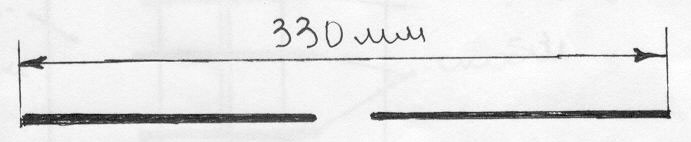 330 мм